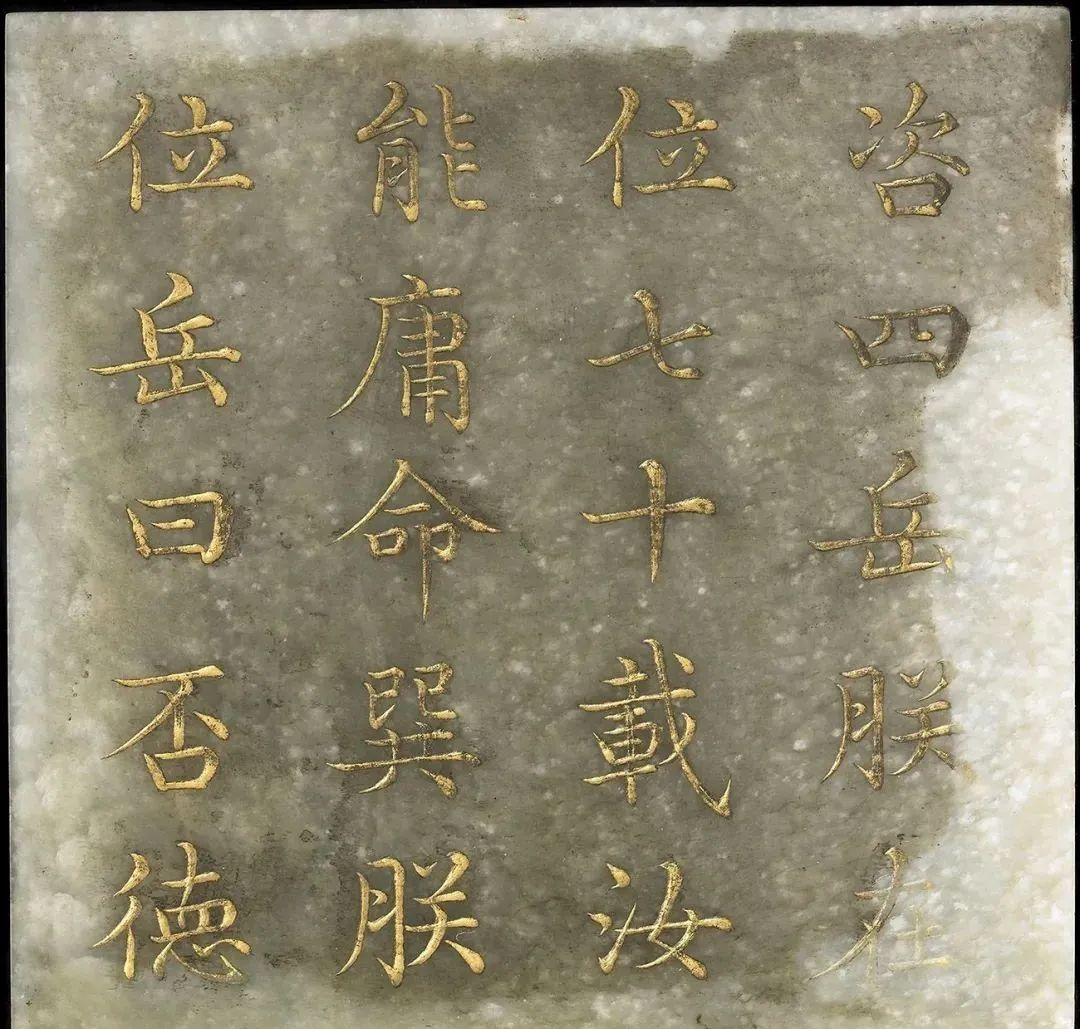 咨四岳朕在
位七十載汝
能庸命巽朕
位岳曰否德